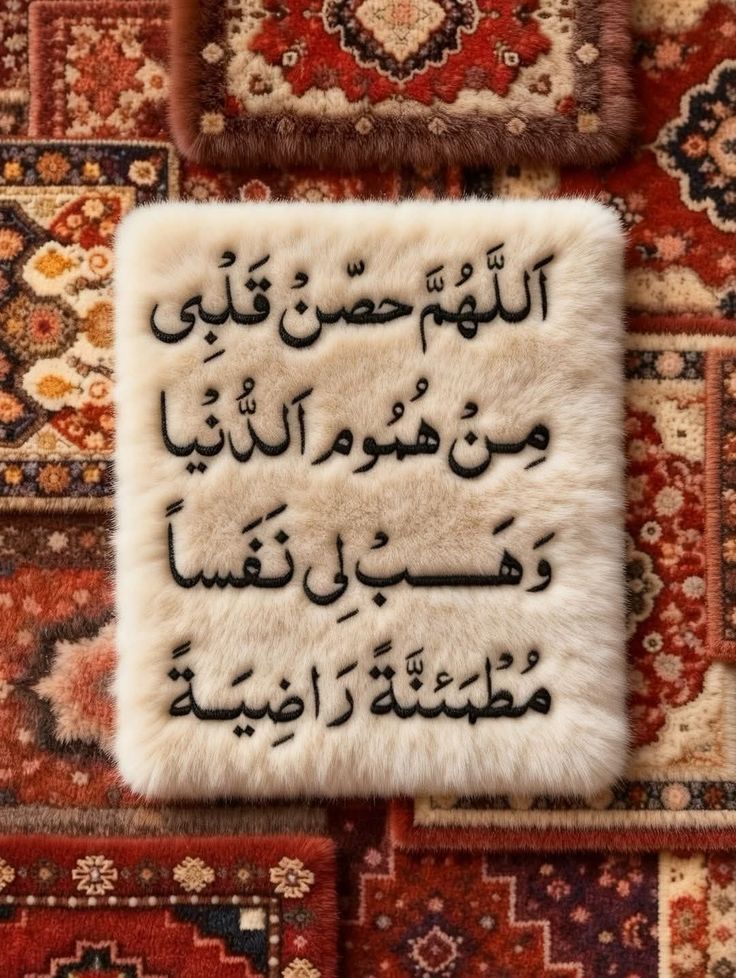 اَللّٰهُمَّ حصّنْ قَلْبِي
مِنْ هُمُومِ اَلدُّنْيا
وَهَبْ لِي نَفَساً
مُطْمَئنَّةً رَاضِيَةً